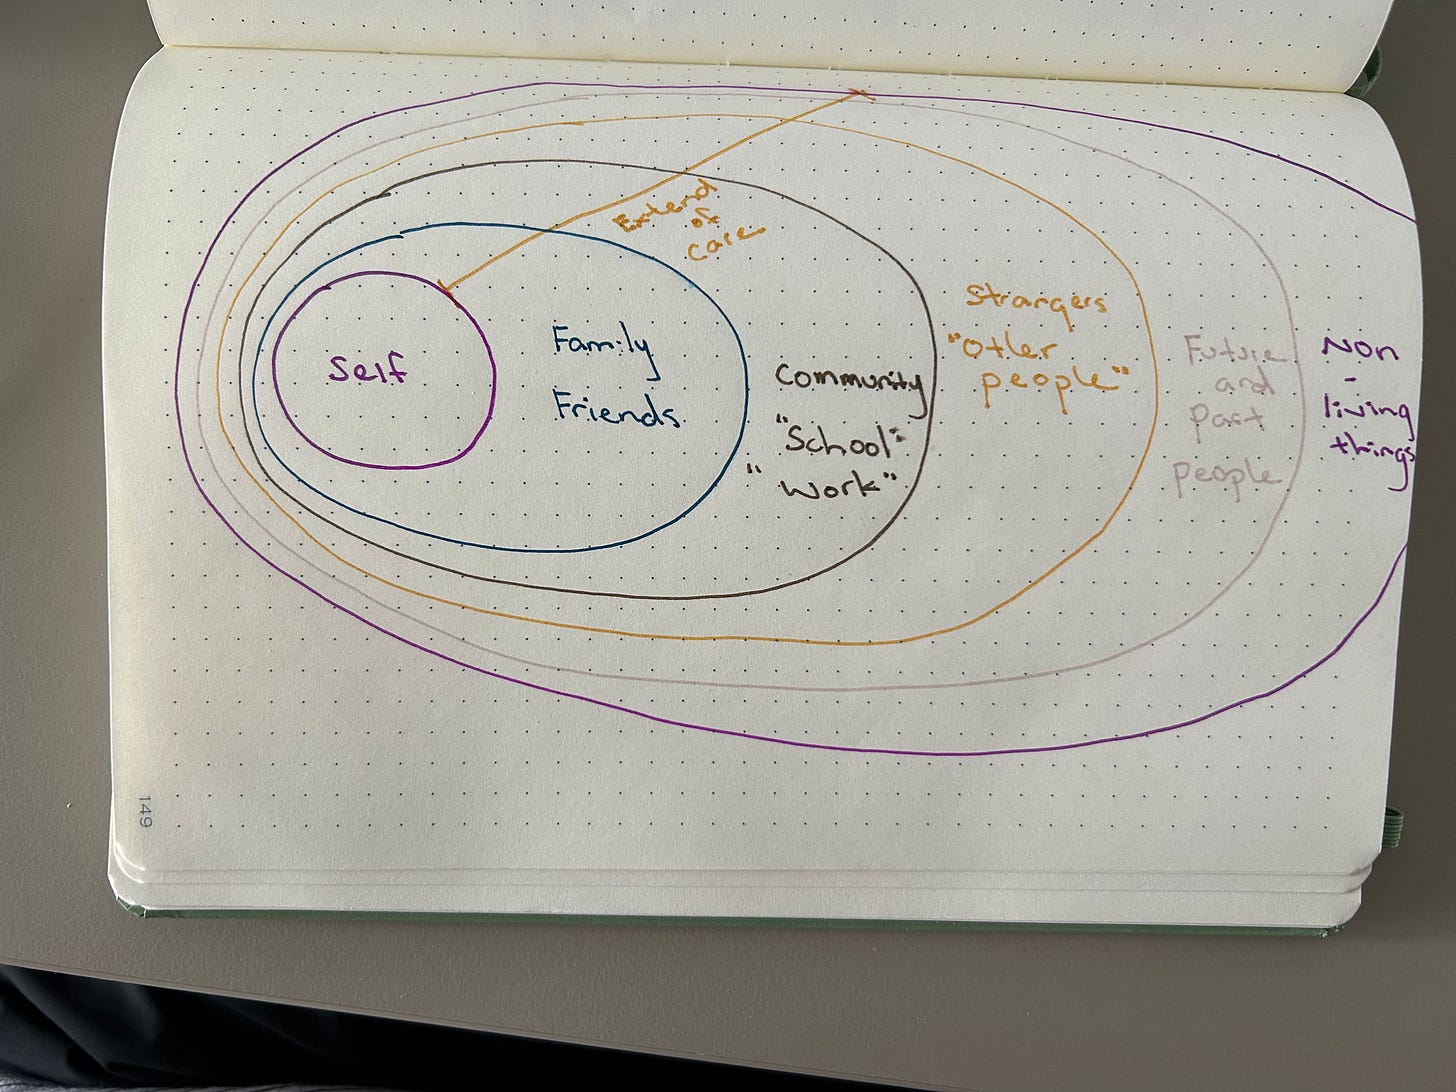 Extend
of
care
Self
Family
Friends
Community
"School"
"Work"
Strangers
"Other
people"
Future
and
Past
people
Non
-
living
things
149